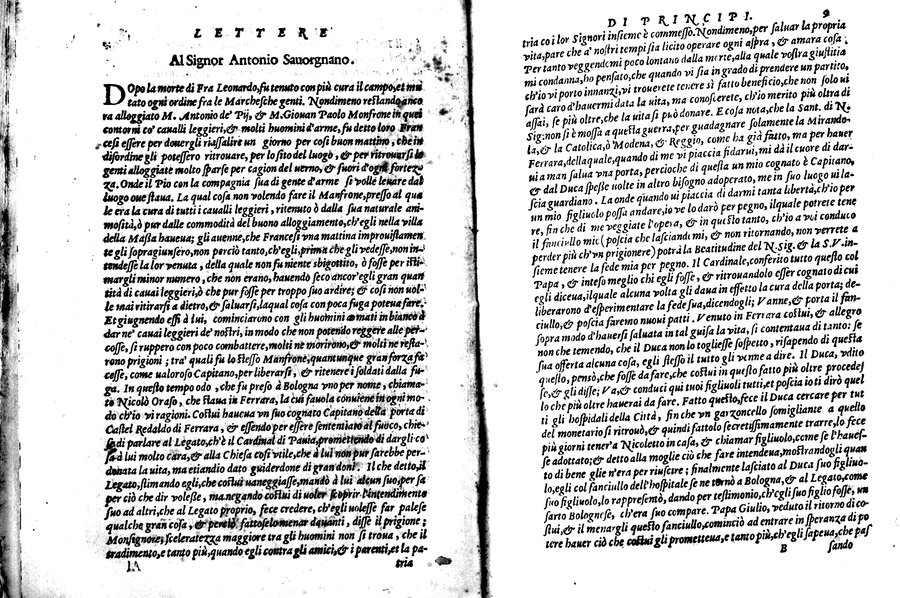 LETTERE
Al Signor Antonio Sauorgnano.
DOpo la morte di Fra Leonardo, fu tenuto con più cura il campo, et mu
tato ogni ordine fra le Marchesche genti. Nondimeno restando anco
ra alloggiato M. Antonio de' Pij, & M. Giouan Paolo Monfrone in quei
contorni co' caualli leggieri, & molti huomini d'arme, fu detto loro Fran
cesi essere per douergli riassalire un giorno per cosi buon mattino, che in
disordine gli potessero ritrouare, per lo sito del luogo, & per ritrouarsi le
genti alloggiate molto sparse per cagion del uerno, & fuori d'ogni fortez-
za. Onde il Pio con la compagnia sua di gente d'arme si volle leuare dal
luogo oue staua. La qual cosa non volendo fare il Manfrone, presso al qua
le era la cura di tutti i caualli leggieri, ritenuto ò dalla sua naturale ani-
mosità, ò pur dalle commodità del buono alloggiamento, ch'egli nella villa
della Massa haueua; gli auenne, che Francesi vna mattina improuisamen
te gli sopragiunsero, non perciò tanto, ch'egli, prima che gli vedesse, non in-
tendesse la lor venuta, della quale non fu niente sbigottito, ò fosse per isti-
margli minor numero, che non erano, hauendo seco ancor'egli gran quan
tità di cauai leggieri, ò che pur fosse per troppo suo ardire; & cosi non uol-
le mai ritirarsi à dietro, & saluarsi, laqual cosa con poca fuga poteua fare.
Et giugnendo essi à lui, cominciarono con gli huomini armati in bianco à
dar ne' cauai leggieri de' nostri, in modo che non potendo reggere alle per-
cosse, si ruppero con poco combattere, molti ne morirono, & molti ne resta-
rono prigioni; tra' quali fu lo stesso Manfrone, quantunque gran forza fa
cesse, come ualoroso Capitano, per liberarsi, & ritenere i soldati dalla fu-
ga. In questo tempo odo, che fu preso à Bologna vno per nome, chiama-
to Nicolò Oraso, che staua in Ferrara, la cui fauola conuiene in ogni mo-
do ch'io vi ragioni. Costui haueua vn suo cognato Capitano della porta di
Castel Redaldo di Ferrara, & essendo per essere sententiato al fuoco, chie-
se di parlare al Legato, ch'è il Cardinal di Pauia, promettendo di dargli co
sa à lui molto cara, & alla Chiesa cosi vtile, che à lui non pur sarebbe per-
donata la uita, ma etiandio dato guiderdone di gran doni. Il che detto, il
Legato, stimando egli, che costui uaneggiasse, mandò à lui alcun suo, per sa
per ciò che dir volesse, ma negando costui di uoler scoprir l'intendimento
suo ad altri, che al Legato proprio, fece credere, ch'egli uolesse far palese
qualche gran cosa, & perciò fattoselo menar dauanti, disse il prigione;
Monsignore, sceleratezza maggiore tra gli huomini non si troua, che il
tradimento, e tanto più, quando egli contra gli amici, & i parenti, et la pa-
tria
DI PRINCIPI. 9
tria co i lor Signori insieme è commesso. Nondimeno, per saluar la propria
vita, pare che a' nostri tempi sia licito operare ogni aspra, & amara cosa.
Per tanto veggendomi poco lontano dalla morte, alla quale vostra giustitia
mi condanna, ho pensato, che quando vi sia in grado di prendere un partito,
ch'io vi porto innanzi, vi trouerete tenere sì fatto beneficio, che non solo ui
sarà caro d'hauermi data la uita, ma conoscerete, ch'io merito più oltra di
assai, se più oltre, che la uita si può donare. E cosa nota, che la Sant. di N.
Sig: non si è mossa a questa guerra, per guadagnare solamente la Mirando-
la, & la Catolica, ò Modena, & Reggio, come ha già fatto, ma per hauer
Ferrara, della quale, quando di me vi piaccia fidarui, mi dà il cuore di dar-
ui a man salua vna porta, percioche di questa un mio cognato è Capitano,
& dal Duca spesse uolte in altro bisogno adoperato, me in suo luogo ui la-
scia guardiano. La onde quando ui piaccia di darmi tanta libertà, ch'io per
un mio figliuolo possa andare, io ve lo darò per pegno, ilquale potrete tene
re, fin che di me veggiate l'opera, & in questo tanto, ch'io a voi conduco
il fanciullo mic (poscia che lasciandomi, & non ritornando, non verrete a
perder più ch'vn prigionere) potrà la Beatitudine del N. Sig. & la S.V. in-
sieme tenere la fede mia per pegno. Il Cardinale, conferito tutto questo col
Papa, & inteso meglio chi egli fosse, & ritrouandolo esser cognato di cui
egli diceua, ilquale alcuna volta gli daua in effetto la cura della porta; de-
liberarono d'esperimentare la fede sua, dicendogli; Vanne, & porta il fan-
ciullo, & poscia faremo nuoui patti. Venuto in Ferrara costui, & allegro
sopra modo d'hauersi saluata in tal guisa la vita, si contentaua di tanto: se
non che temendo, che il Duca non lo togliesse sospetto, risapendo di questa
sua offerta alcuna cosa, egli stesso il tutto gli venne a dire. Il Duca, vdito
questo, pensò, che fosse da fare, che costui in questo fatto più oltre procedes
se, & gli disse; Va, & conduci qui tuoi figliuoli tutti, et poscia io ti dirò quel
lo che più oltre hauerai da fare. Fatto questo, fece il Duca cercare per tut
ti gli hospidali della Città, fin che vn garzoncello somigliante a quello
del monetario si ritrouò, & quindi fattolo secretissimamente trarre, lo fece
più giorni tener'a Nicoletto in casa, & chiamar figliuolo, come se l'haues-
se adottato; & detto alla moglie ciò che fare intendeua, mostrandogli quan
to di bene glie n'era per riuscire; finalmente lasciato al Duca suo figliuo-
lo, egli col fanciullo dell'hospitale se ne tornò a Bologna, & al Legato, come
suo figliuolo, lo rappresentò, dando per testimonio, ch'egli suo figlio fosse, un
sarto Bolognese, ch'era suo compare. Papa Giulio, veduto il ritorno di co-
stui, & il menargli questo fanciullo, cominciò ad entrare in speranza di po
tere hauer ciò che costui gli prometteua, e tanto più, ch'egli sapeua, che pas
B sando